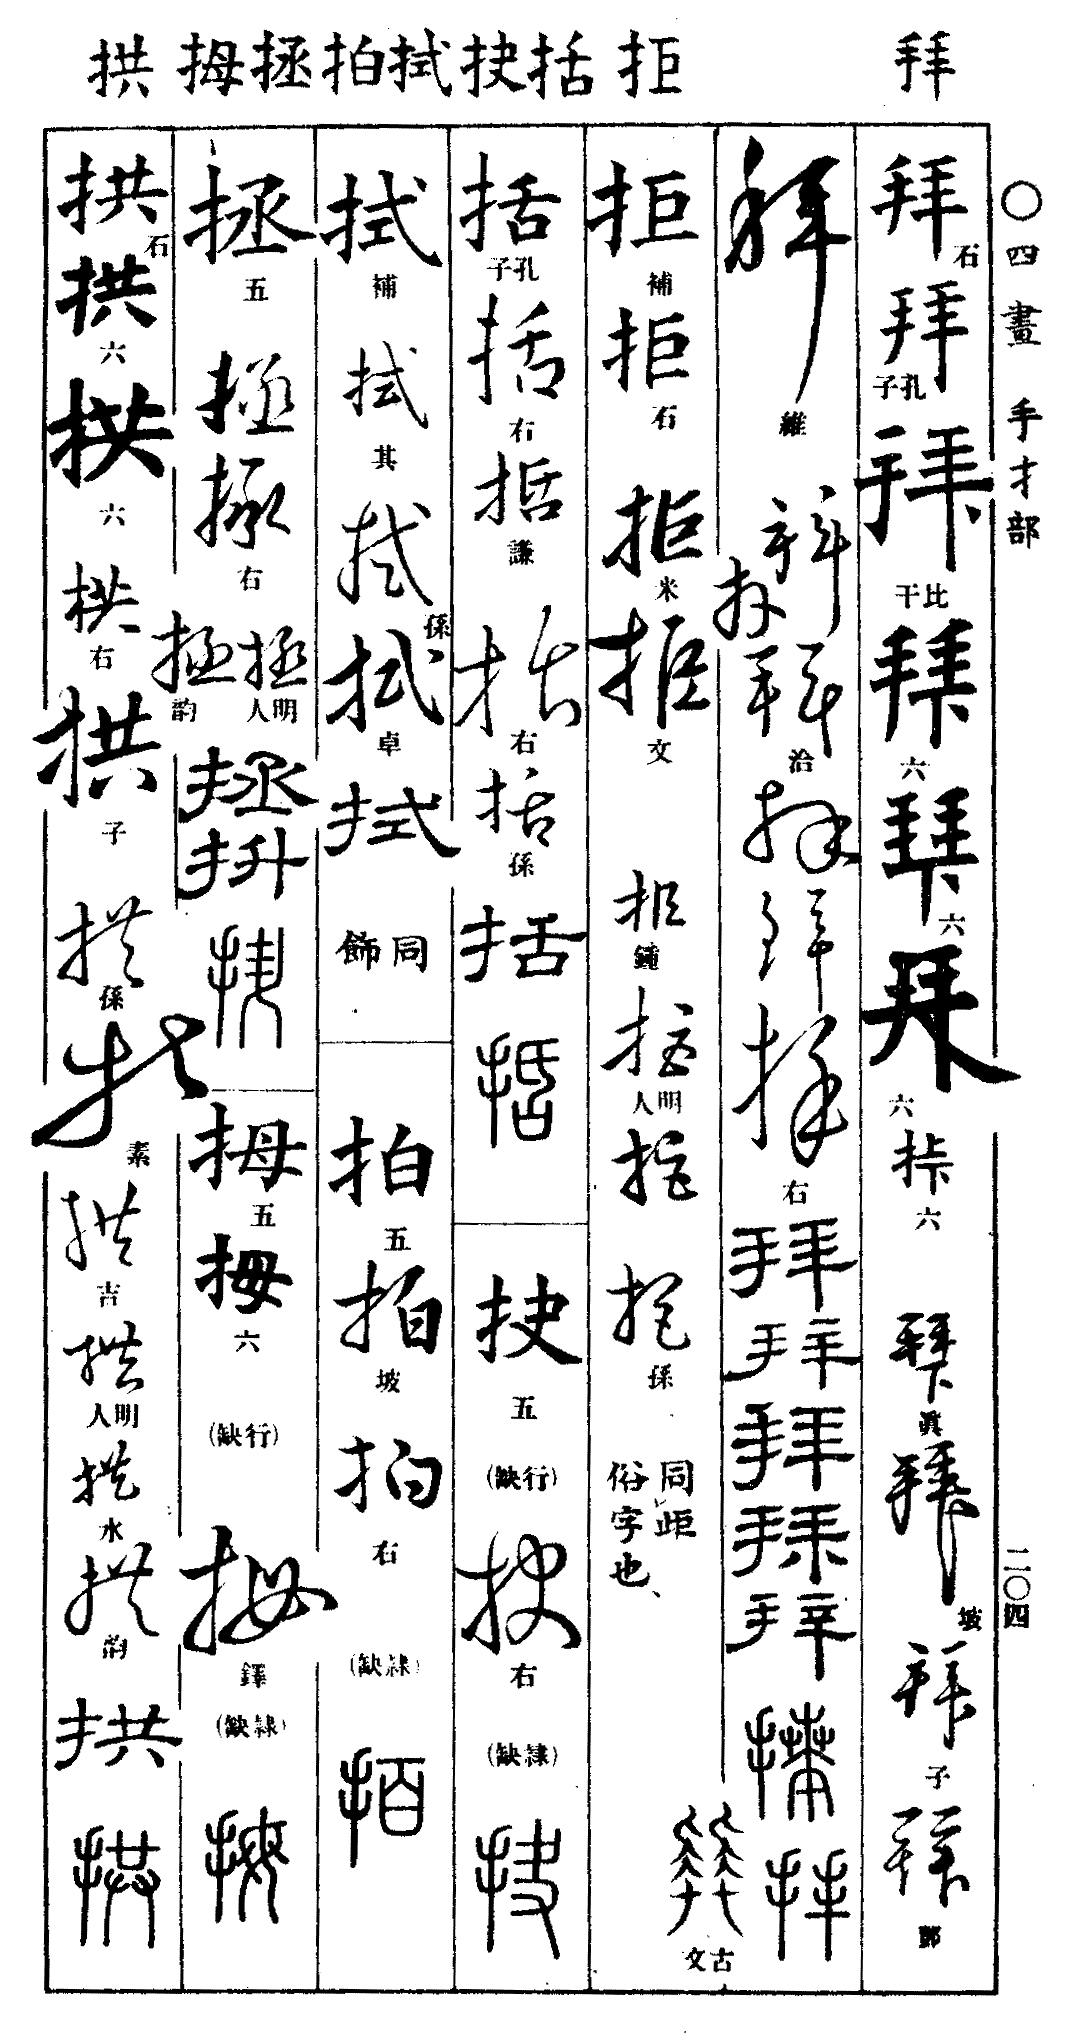 拜 拒 括抉 拭拍 拯拇 拱
〇四畫 手扌部 二〇四
拜石 拜孔子 拜比干 拜六 拜六 拜六 拜六 拜眞 拜坡 拜子 拜鄧
拜維 拜拜拜治 拜拜拜右 拜拜拜拜拜拜拜 古文
拒補 拒石 拒米 拒文 拒鍾 拒明人 拒拒孫 同距俗字也、
括孔子 括右 括謙 括右 括孫 括括
抉五 (行缺) 抉右 (隸缺) 抉
拭補 拭其 拭孫 拭卓 拭 同飾
拍五 拍坡 拍右 (隸缺) 拍
拯五 拯拯右 拯明人 拯韵 拯抍 拯
拇五 拇六 (行缺) 拇鐸 (隸缺) 拇
拱石 拱六 拱六 拱右 拱子 拱孫 拱素 拱吉 拱明人 拱水 拱韵 拱 拱